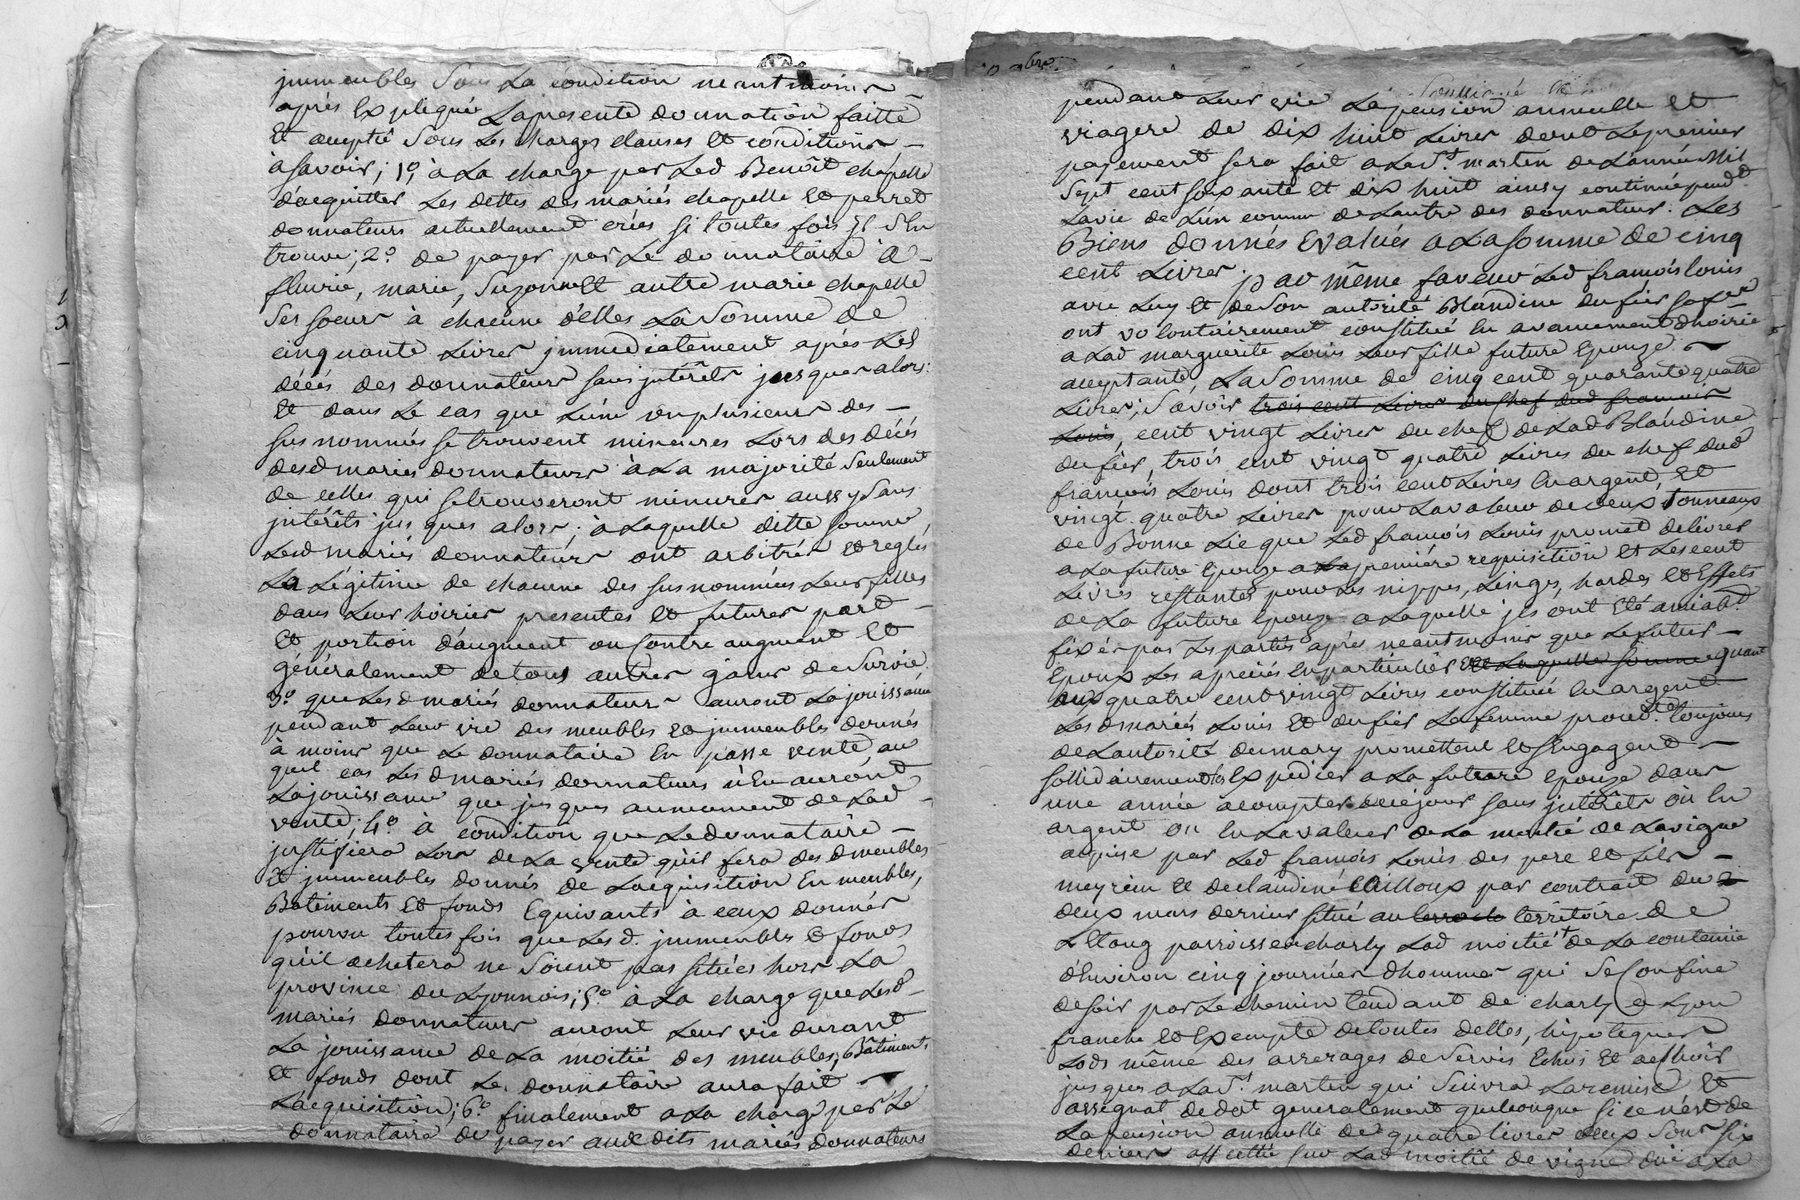 immeubles Sous La condition neantmoins
après Expliqué Lapresente donnation faitte
Et acceptée Sous Les charges clauses Et conditions
à Savoir; 1º, à La charge par Led Benoît chapelle
d'acquitter Les dettes des mariés chapelle Et perret
donnateurs actuellement crées si toutes fois il S'En
trouve; 2º. de payer par Le donnataire à
fleurie, marie, Suzanne Et autre marie chapelle
Ses soeurs à chacune d'elles La Somme de
cinquante Livres immediatement après Les
décés des donnateurs sans intérêts jusques alors:
Et dans Le cas que L'une ou plusieurs des
susnommées se trouvent mineures Lors des décés
desd mariés donnateurs à La majorité Seulement
de celles qui se trouveront mineures aussy Sans
intérêts jusques alors; à Laquelle ditte somme
Lesd mariés donnateurs ont arbitrés Et reglés
La Légitime de chacune des susnommées Leurs filles
dans Leurs hoiries presentes Et futures part
Et portion d'augment ou contre augment Et
généralement de tous autres gains de Survie
3º. que Lesd mariés donnateurs auront La jouissance
pendant Leur vie des meubles Et immeubles donnés
à moins que Le donnataire En passe vente, au
quel cas Lesd mariés donnateurs n'En auront
La jouissance que jusques au moment de Lad
vente; 4º. à condition que Le donnataire
justifiera Lors de La vente qu'il fera desd meubles
Et immeubles donnés de L'acquisition En meubles,
Batiments Et fonds Equivants à ceux donnés
pourvu toutes fois que Lesd. immeubles Et fonds
qu'il achetera ne Soient pas situés hors La
province du Lyonnois; 5º. à La charge que Lesd
mariés donnateurs auront Leur vie durant
La jouissance de La moitié des meubles, Bâtiments
Et fonds dont Le donnataire aura fait
L'acquisition; 6º. finalement à La charge par Le
donnataire de payer aux dits mariés donnateurs
pendant Leur vie La pension annuelle Et
viagere de dix huit Livres dont Le premier
payement sera fait à La St martin de L'année Mil
Sept cent soixante Et dix huit ainsy continué pendt
La vie de L'un comme de L'autre des donnateurs. Les
Biens donnés Evalués à La somme de cinq
cent Livres. par même faveur Led françois Louis
avec Luy Et de Son autorité Blandine du fier sa fe
ont volontairement constitué En avancement d'hoirie
à Lad marguerite Louis Leur fille future Epouze
acceptante, La Somme de cinq cent quarante quatre
Livres; Savoir trois cent Livres du chef dud françois
Louis, cent vingt Livres du chef de Lad Blandine
du fier, trois cent vingt quatre Livres du chef dud
françois Louis dont trois cent Livres En argent, Et
vingt quatre Livres pour La valeur de deux tonneaux
de Bonne Lie que Led françois Louis promet delivrer
à La future Epouze à La premiére requisition Et Les cent
Livres restantes pour Les nippes, Linges, hardes Et Effets
de La future Epouze à Laquelle ils ont Eté amiabt
fixés par Les parties après neantmoins que Le futur
Epoux Les a preciés En particulier Et Laquelle Somme quant
aux quatre cent vingt Livres constitué En argent
Lesd mariés Louis Et du fier La femme proced. toujours
de L'autorité du mary promettent Et S'Engagent
sollidairement Expedier à La future Epouze dans
une année à compter de ce jour sans intérêts où En
argent où En La valeur de La moitié de La vigne
acquise par Led françois Louis des pere Et fils
meyrieu Et de claudine Cailloux par contrait du 2
deux mars dernier situé au territoire de
L'Etang parroisse charly Lad moitié de La contenue
d'Environ cinq journées d'hommes qui Se Confine
de soir par Le chemin tendant de charly à Lyon
franche Et Exempte de toutes dettes, hipoteques
Lods même des arrerages de Servis Echus Et a Echoir
jusques à La St martin qui Suivra La remise Et
assignat de dot generalement quelconque si ce n'est de
La pension annuelle de quatre Livres deux Sous six
deniers affectée sur Lad moitié de vigne due à La